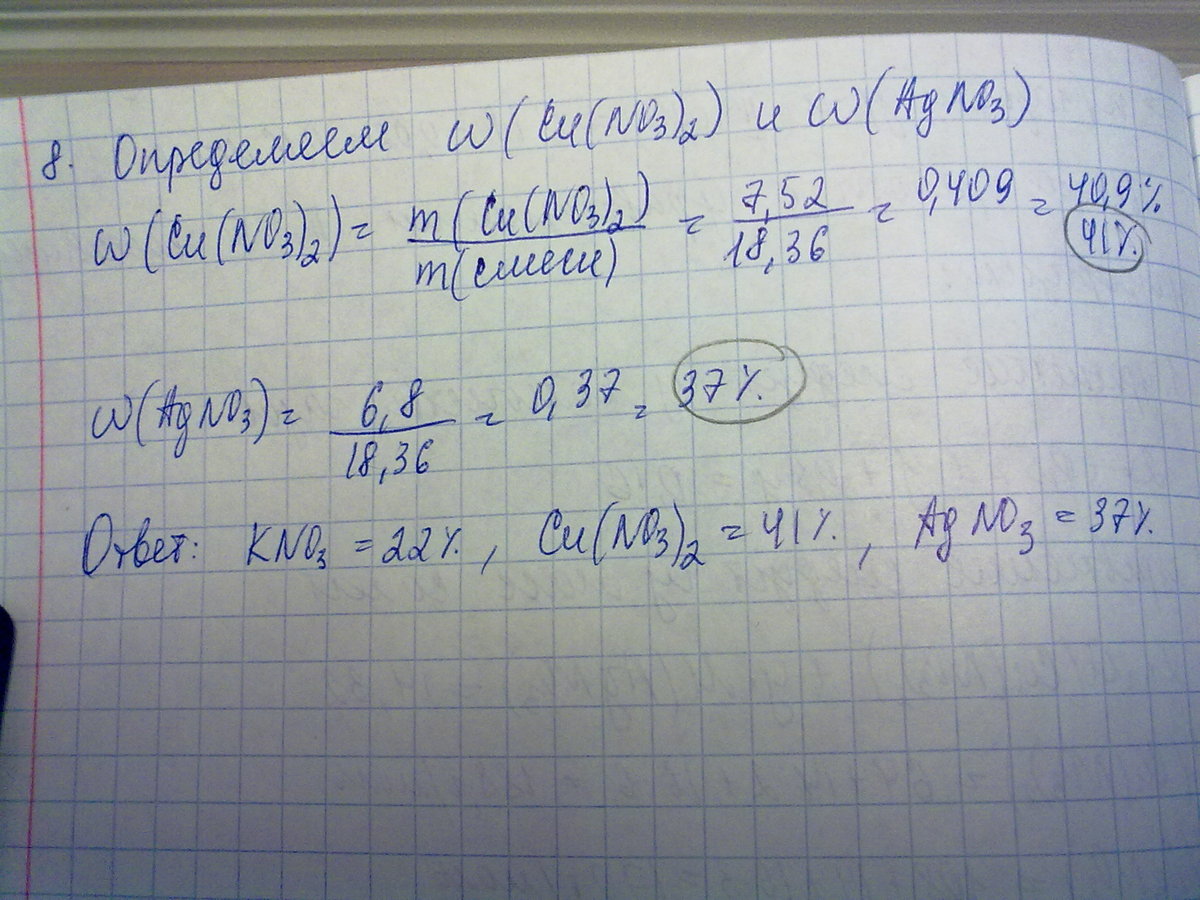 8. Определяем w(Cu(NO3)2) и w(AgNO3)
w(Cu(NO3)2) = m(Cu(NO3)2) / m(смеси) = 7,52 / 18,36 = 0,409 = 40,9%
41%.
w(AgNO3) = 6,8 / 18,36 = 0,37 = 37%.
Ответ: KNO3 = 22%, Cu(NO3)2 = 41%, AgNO3 = 37%.